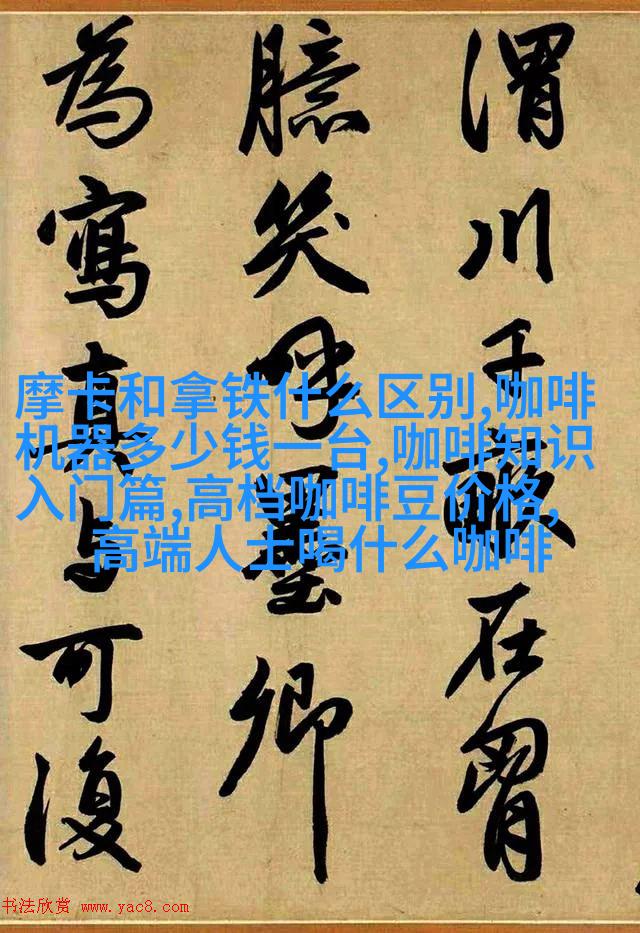 渭川千畝在胷
臆笑呼墨卿
為寫真与可復
摩卡和拿铁什么区别,咖啡
机器多少钱一台,咖啡知识
入门篇,高档咖啡豆价格,
高端人士喝什么咖啡
书法欣赏 www.yac8.com